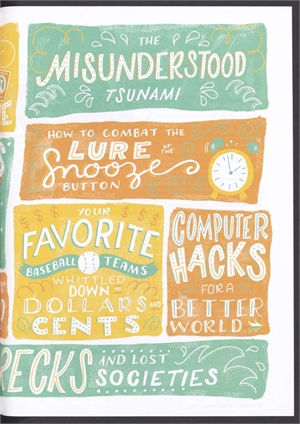 THE
MISUNDERSTOOD
TSUNAMI
HOW TO COMBAT THE
LURE OF THE
Snooze
BUTTON
YOUR
FAVORITE
BASEBALL TEAMS
WHITTLED
DOWN TO
DOLLARS AND
CENTS
COMPUTER
HACKS
FOR A
BETTER
WORLD
RECKS AND LOST
SOCIETIES